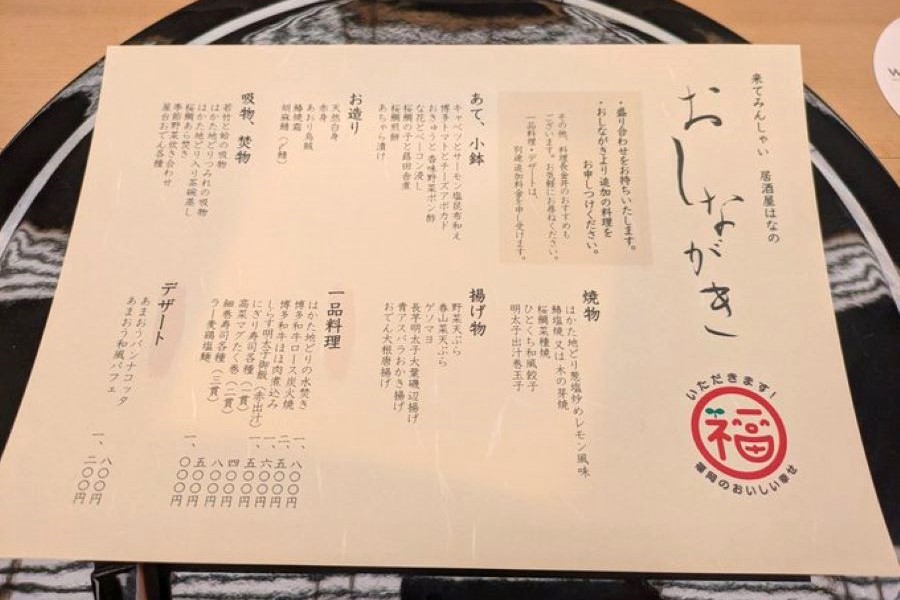 来てみんしゃい 居酒屋はなの
おしながき
いただきます！
福
福岡のおいしい幸せ
・盛り合わせをお持ちいたします。
・おしながきより追加の料理を
お申しつけください。
その他、料理長金井のおすすめも
ございます。お気軽にお尋ねください。
一品料理・デザートは、
別途追加料金を申し受けます。
あて、小鉢
キャベツとサーモン塩昆布和え
博多トマトとチーズアボカド
おきゅうと香味野菜ポン酢
な花とベーコン浸し
桜鯛の子と蕗田舎煮
桜鯛煎餅
あちゃら漬け
お造り
天然白身
赤身
あおり烏賊
鰆焼霜
胡麻鯖（〆鯖）
吸物、焚物
若竹と蛤の吸物
はかた地どりつみれの吸物
はかた地どり入り茶碗蒸し
桜鯛あら焚き
季節野菜炊き合わせ
屋台おでん各種
焼物
はかた地どり葱塩炒めレモン風味
鰆塩焼又は木の芽焼
桜鯛菜種焼
ひとくち和風餃子
明太子出汁巻玉子
揚げ物
野菜天ぷら
春山菜天ぷら
ゲソマヨ
長芋明太子大葉磯辺揚げ
青アスパラおかき揚げ
おでん大根唐揚げ
一品料理
はかた地どりの水焚き 一、八〇〇円
博多和牛ロース炭火焼 二、五〇〇円
博多和牛ほほ肉煮込み 一、六〇〇円
しらす明太子御飯（赤出汁） 一、五〇〇円
にぎり寿司各種（一貫） 四〇〇円
高菜マグたく巻（二貫） 八〇〇円
細巻寿司各種（三貫） 五〇〇円
ラー麦鶏塩麺 一、〇〇〇円
デザート
あまおうパンナコッタ 一、八〇〇円
あまおう和風パフェ 一、二〇〇円